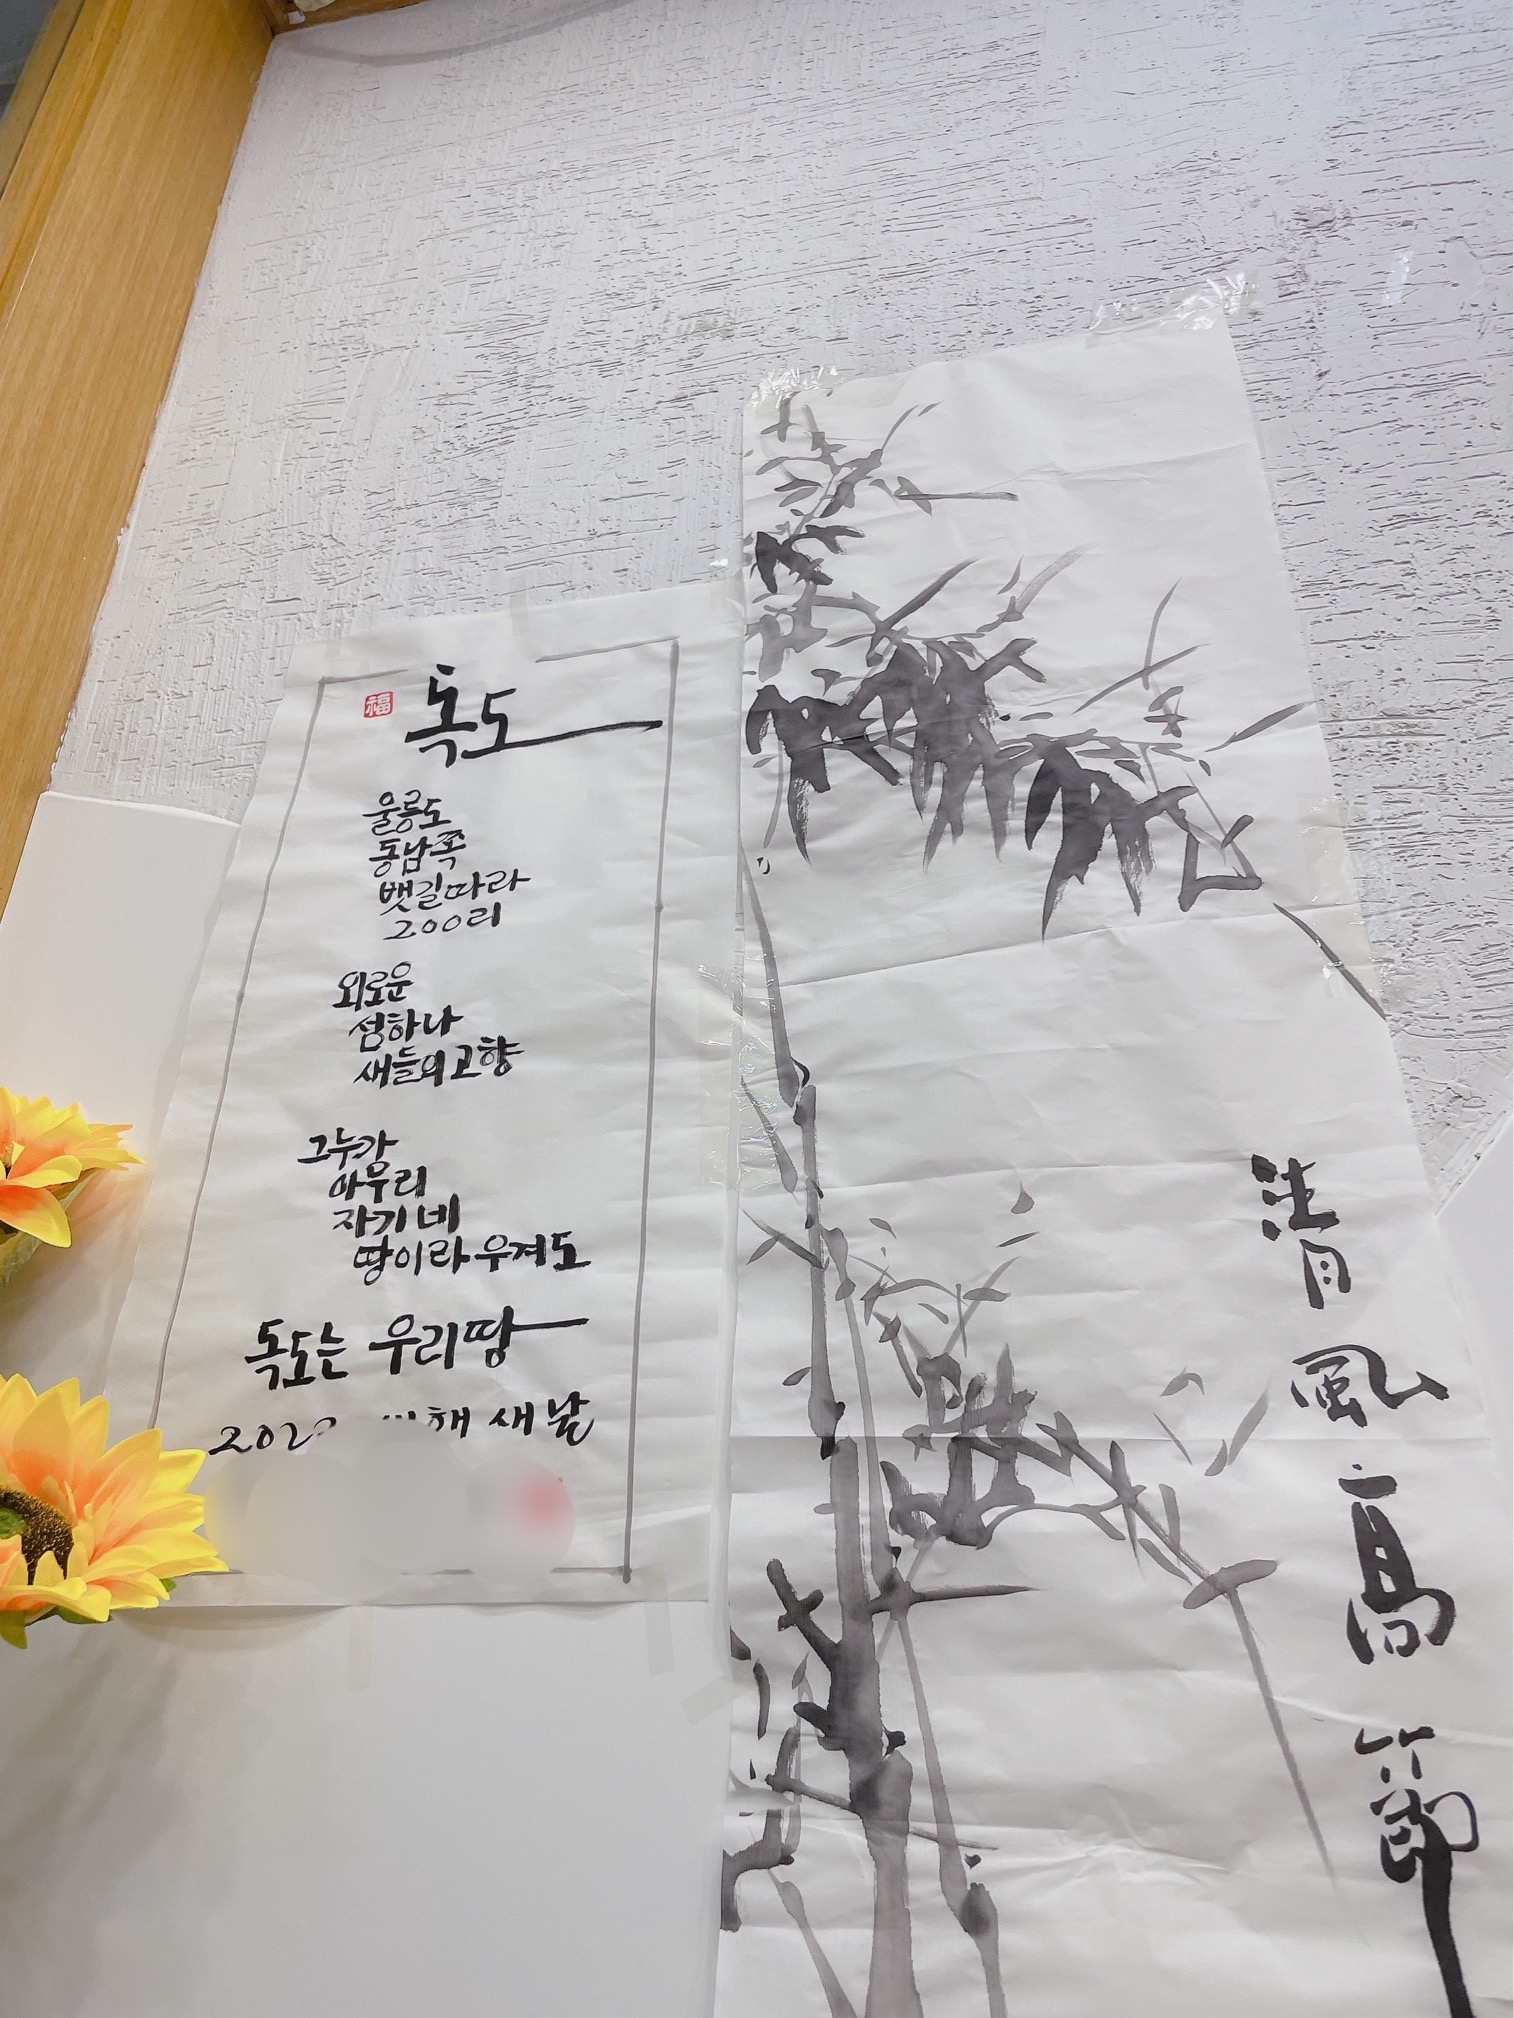 福
독도
울릉도
동남쪽
뱃길따라
200리
외로운
섬하나
새들의고향
그누가
아무리
자기네
땅이라우겨도
독도는 우리땅
새날
清
風
高
節